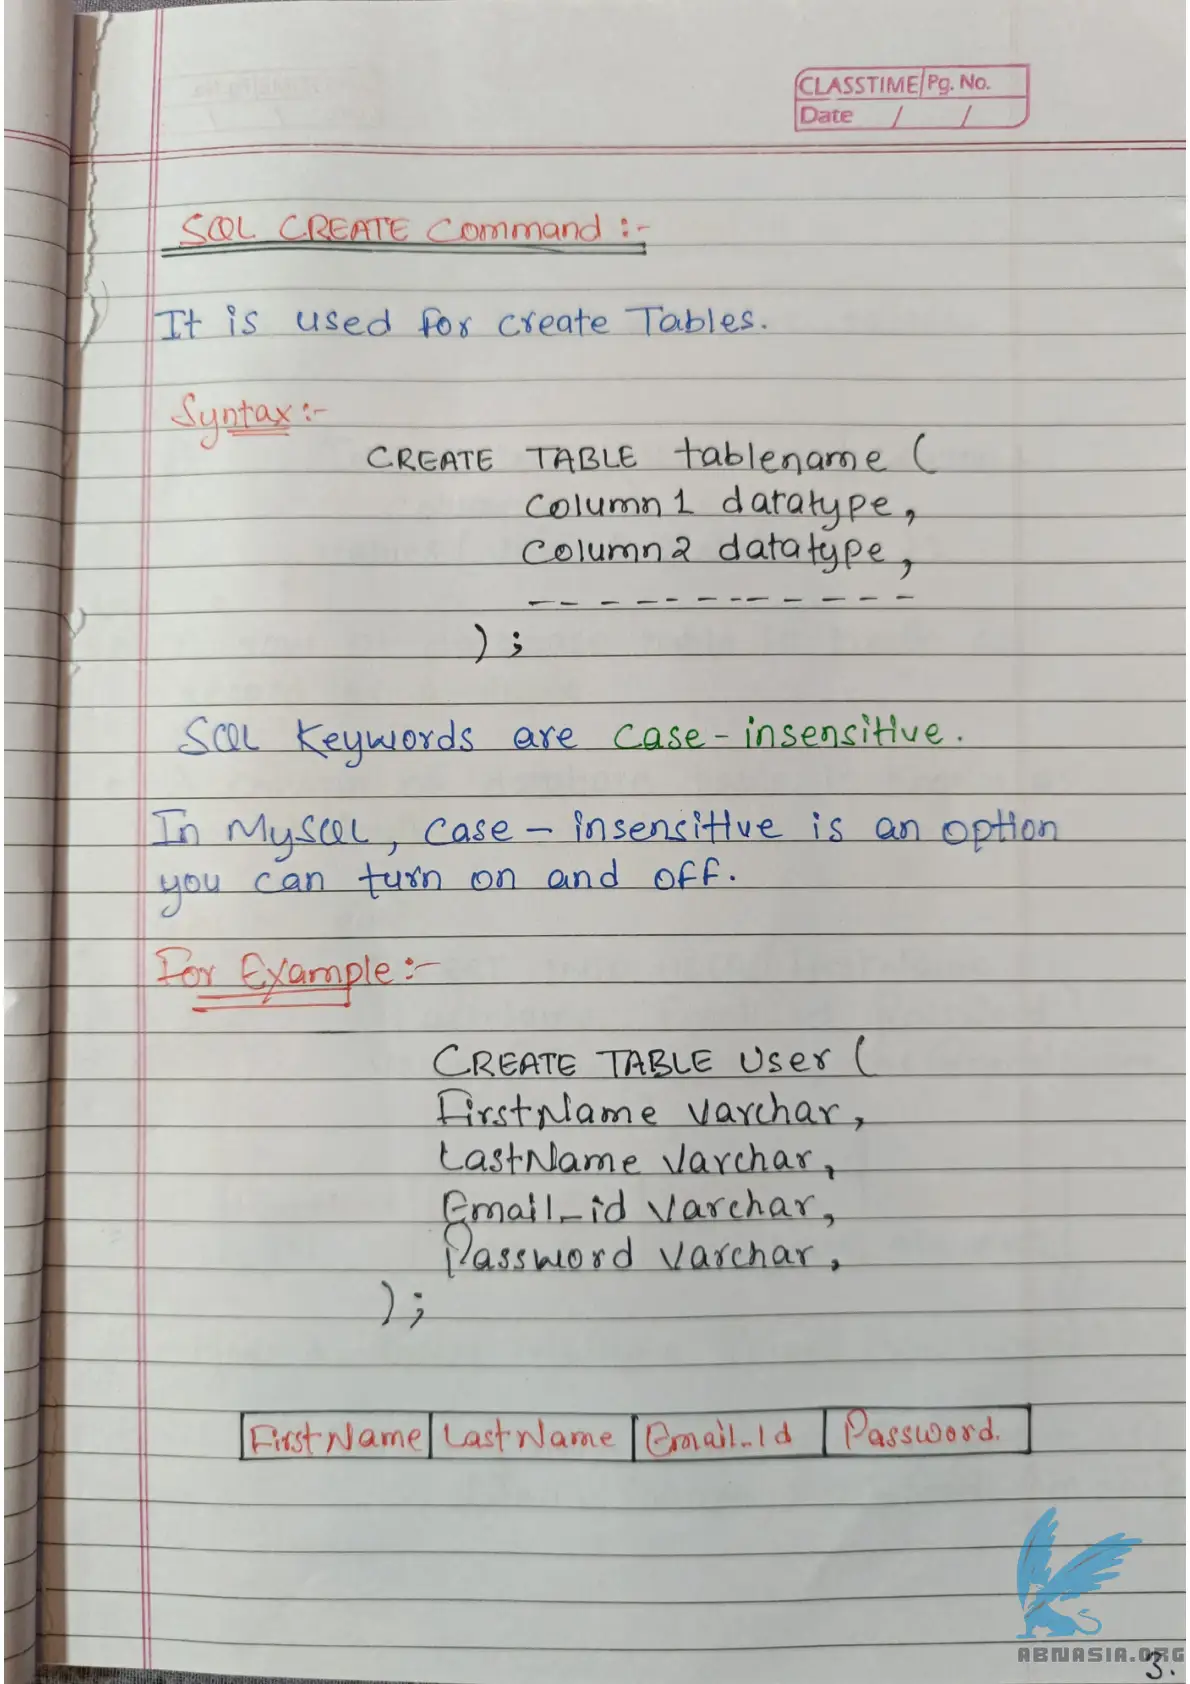 CLASSTIME Pg. No.
Date / /
SQL CREATE Command :-
It is used for create Tables.
Syntax :-
CREATE TABLE tablename (
Column1 datatype,
Column2 datatype,
------------
) ;
SQL Keywords are case-insensitive.
In MySQL, case-insensitive is an option
you can turn on and off.
For Example :-
CREATE TABLE User (
FirstName varchar,
LastName Varchar,
Email_id Varchar,
Password Varchar,
) ;
FirstName LastName Email_Id Password.
ABNASIA.ORG
3.